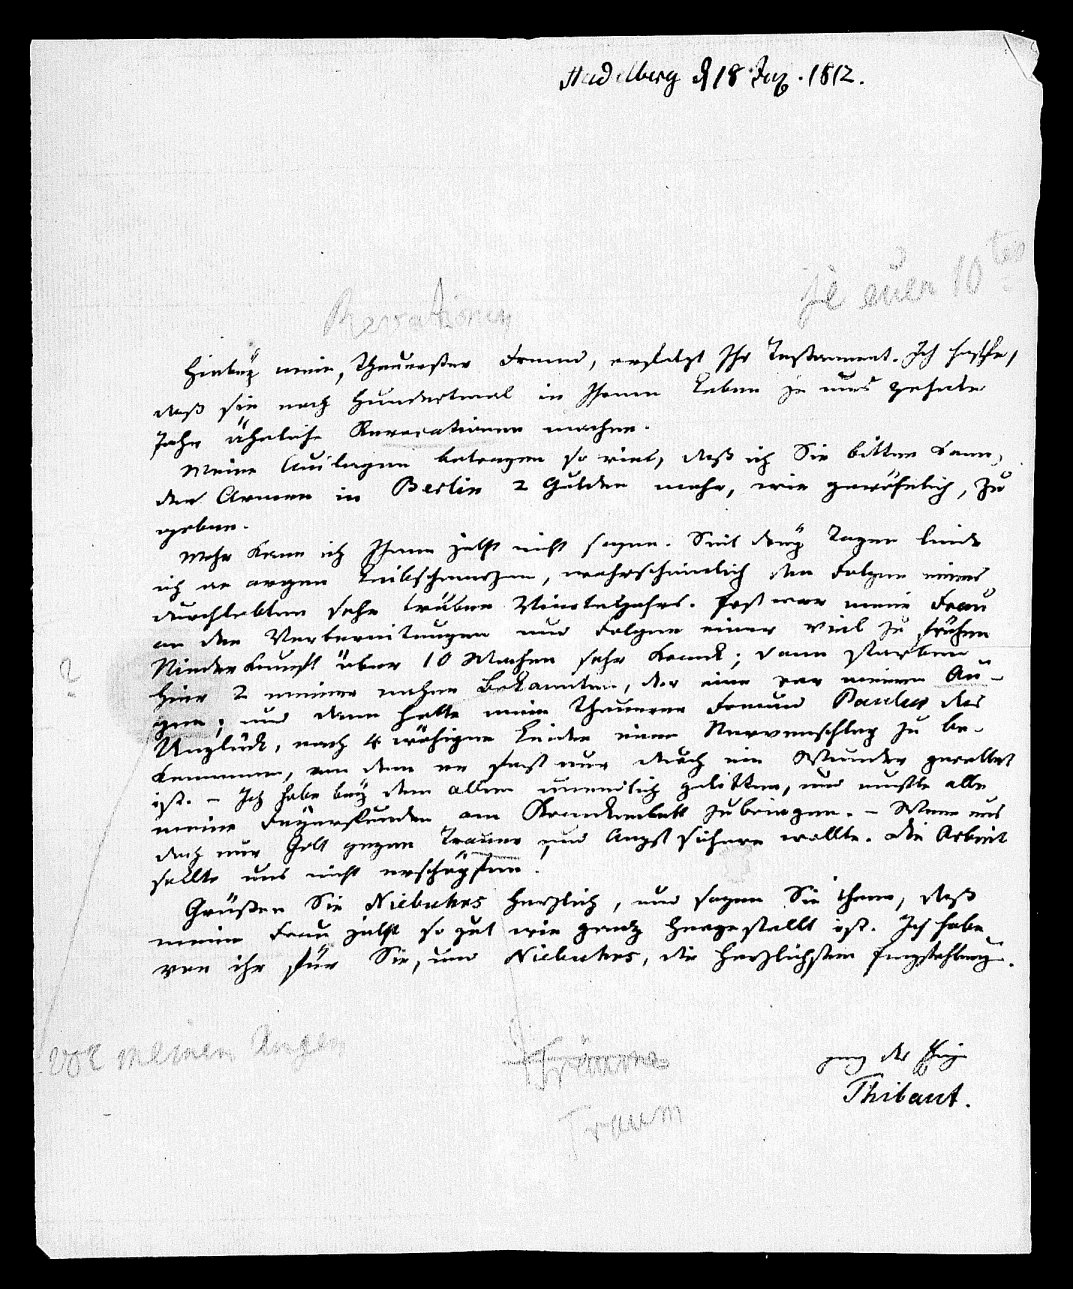 Heidelberg d 18 Jan. 1812.
je euer 10ten
Revocationen
Hierbey mein, theuerster Freund, erfolgt Ihr Testament. Ich hoffe,
daß sie noch hundertmal in Ihrem Leben je um's zehnte
Jahr ähnliche Revocationen machen.
Meine Auslagen betragen so viel, daß ich Sie bitten kann,
den Armen in Berlin 2 Gulden mehr, wie gewöhnlich, zu
geben.
Mehr kann ich Ihnen jetzt nicht sagen. Seit drey Tagen leide
ich an argen Leibschmerzen, wahrscheinlich den Folgen eines
durchlebten sehr trüben Vierteljahrs. Erst war meine Frau
an den Vorbereitungen und Folgen einer viel zu frühen
Niederkunft über 10 Wochen sehr krank; dann starben
hier 2 meiner nahen Bekannten, der eine vor meinen Au-
gen; und dann hatte mein theurer Freund Paulus das
Unglück, nach 4 wöchigem Leiden einen Nervenschlag zu be-
kommen, von dem er fast nur durch ein Wunder gerettet
ist. – Ich habe bey dem allen unendlich gelitten, und mußte alle
meine Feyerstunden am Krankenbett zubringen. – Wenn uns
doch nur Gott gegen Trauer und Angst sichern wollte. Die Arbeit
sollte uns nicht erschöpfen.
Grüßen Sie Niebuhrs herzlich, und sagen Sie ihnen, daß
meine Frau jetzt so gut wie ganz hergestellt ist. Ich habe
von ihr für Sie, und Niebuhrs, die herzlichsten Empfehlungen.
?
vor meinen Augen
Traum
ganz der Ihrige
Thibaut.